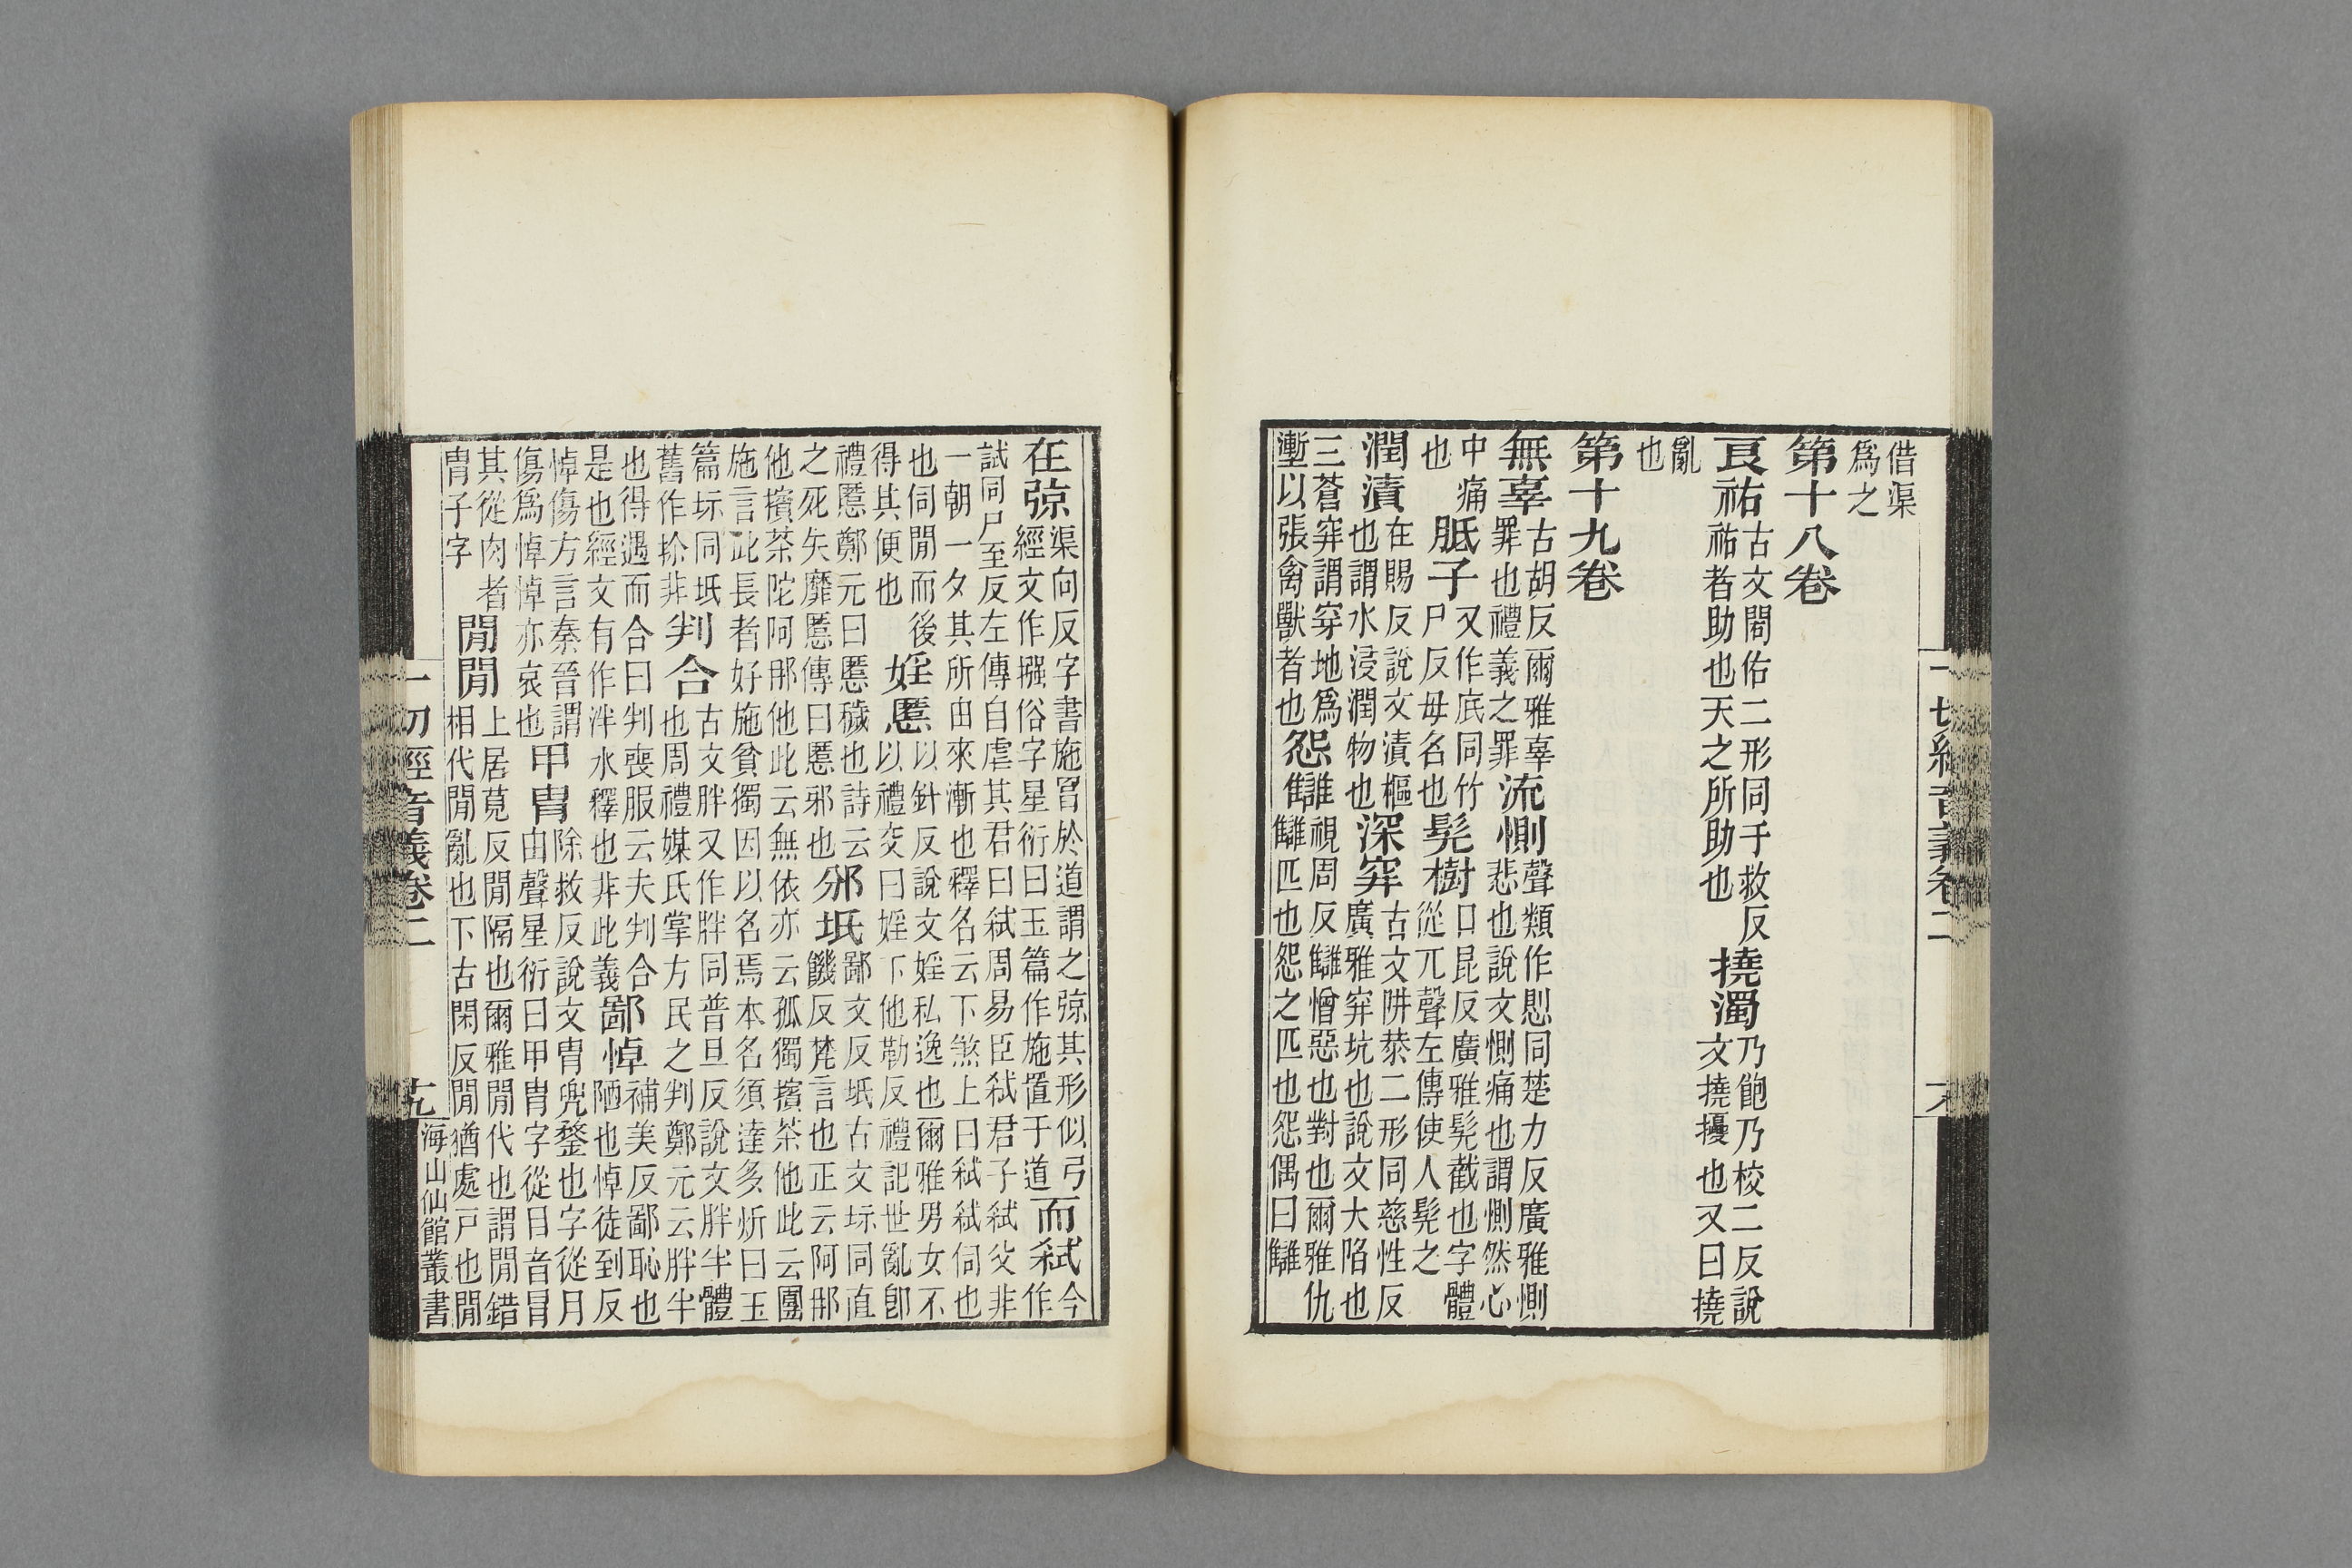 借渠
爲之
第十八卷
良祐古文閎佑二形同于救反
祐者助也天之所助也
撓濁乃飽乃校二反說
文撓擾也又曰撓
亂
也
第十九卷
無辜古胡反爾雅辜
罪也禮義之罪
流惻聲類作㥽同楚力反廣雅惻
悲也說文惻痛也謂惻然心
中痛
也
胝子又作底同竹
尸反母名也
髡樹口昆反廣雅髡截也字體
從兀聲左傳使人髡之
潤漬在賜反說文漬漚
也謂水浸潤物也
深穽古文阱㭺二形同慈性反
廣雅穽坑也說文大陷也
三蒼穽謂穿地爲
塹以張禽獸者也
怨讎視周反讎憎惡也對也爾雅仇
讎匹也怨之匹也怨偶曰讎
一切經音義卷二
大
在弶渠向反字書施罥於道謂之弶其形似弓
經文作摾俗字星衍曰玉篇作施置于道
而弑今
作
試同尸至反左傳自虐其君曰弑周易臣弑君子弑父非
一朝一夕其所由來漸也釋名云下煞上曰弑弑伺也
也伺閒而後
得其便也
婬慝以針反說文婬私逸也爾雅男女不
以禮交曰婬下他勒反禮記世亂卽
禮慝鄭元曰慝穢也詩云
之死矢靡慝傳曰慝邪也
邠坻鄙文反坻古文坛同直
饑反梵言也正云阿那
他擯茶陀阿那他此云無依亦云孤獨擯茶他此云團
施言此長者好施貧獨因以名焉本名須達多炘曰玉
篇坛同坻
舊作軫非
判合古文胖又作胖同普旦反說文胖半體
也周禮媒氏掌方民之判鄭元云胖半
也得遇而合曰判喪服云夫判合
是也經文有作泮水釋也非此義
鄙悼補美反鄙恥也
陋也悼徒到反
悼傷方言秦晉謂
傷爲悼悼亦哀也
甲冑除救反說文冑兜鍪也字從月
由聲星衍曰甲冑字從冃音冒
其從肉者
冑子字
閒閒上居莧反閒隔也爾雅閒代也謂閒錯
相代閒亂也下古閑反閒猶處戸也閒
一切經音義卷二
十九
海山仙館叢書